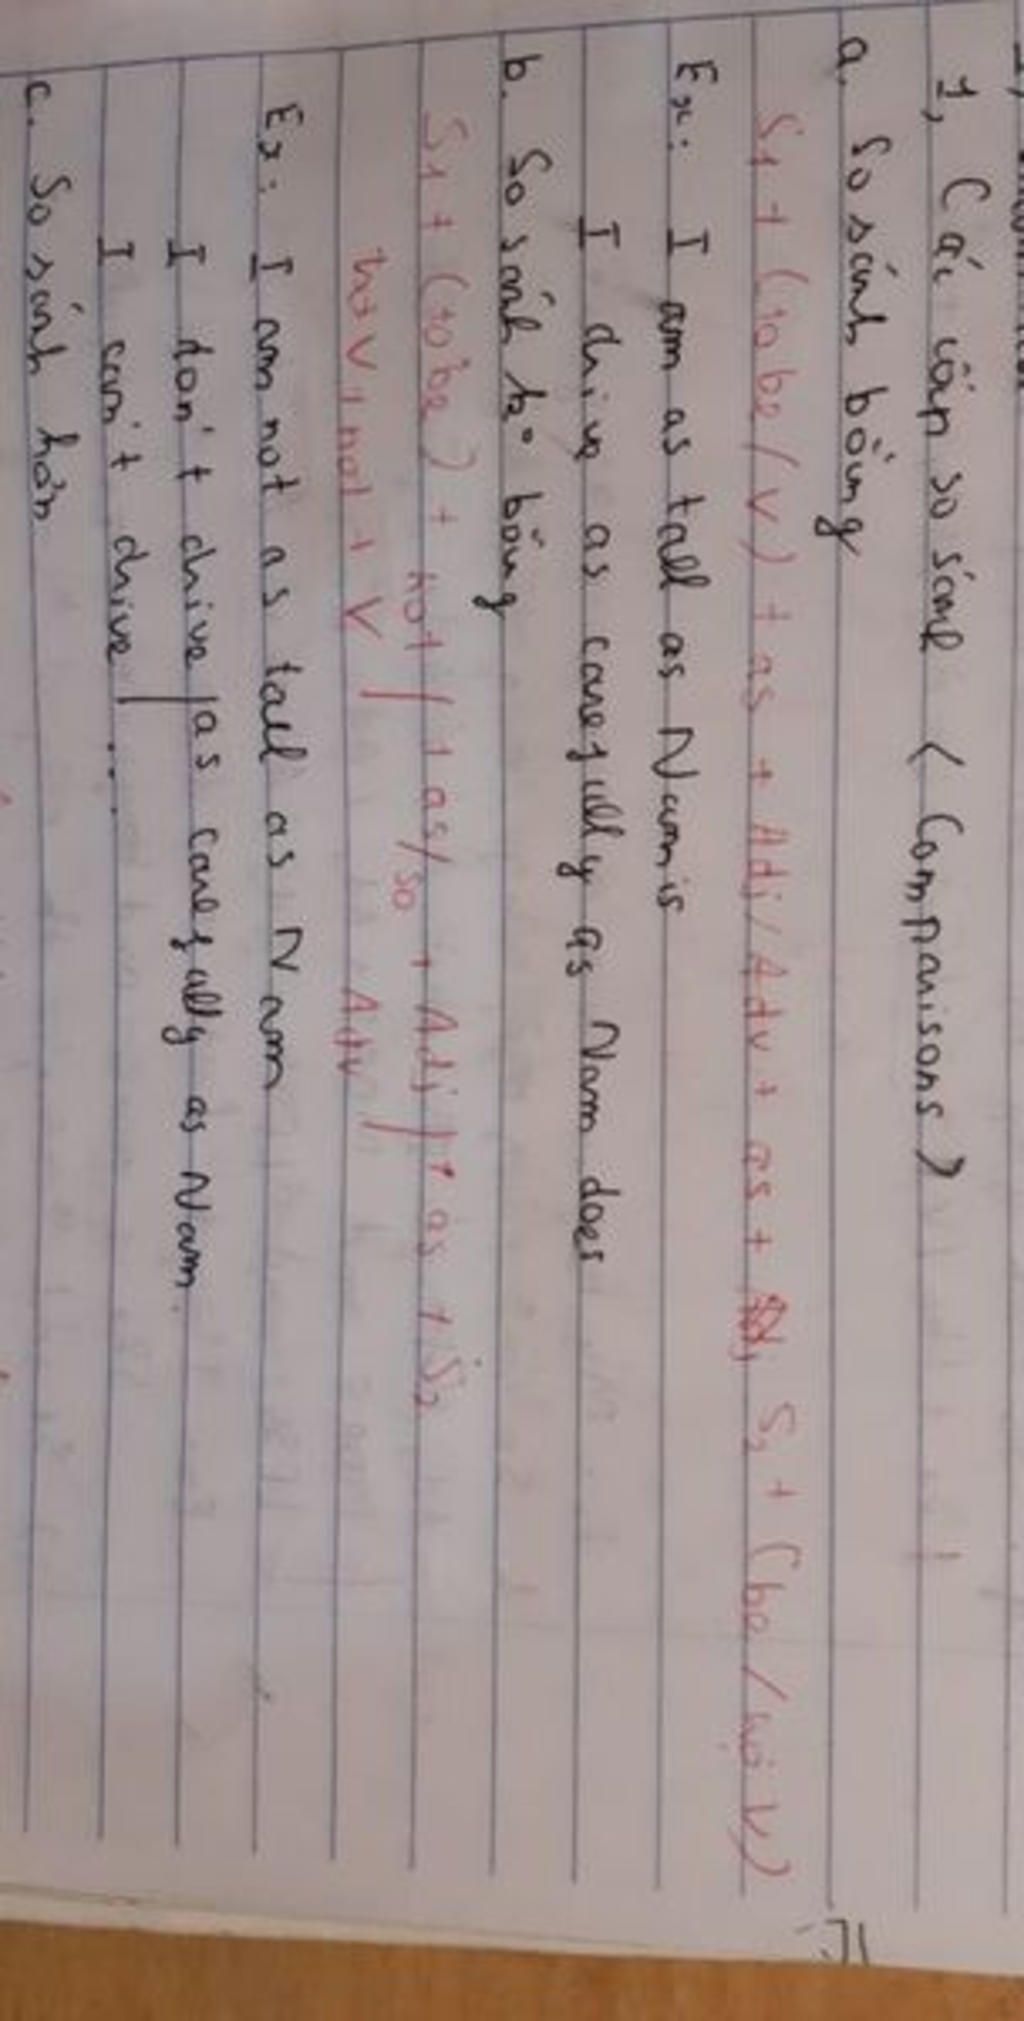 1, Các cấp so sánh (Comparisons)
a. So sánh bằng
S1 + (to be / V) + as + Adj / Adv + as + S2 + (be / V)
Ex: I am as tall as Nam is
I drive as carefully as Nam does
b. So sánh ko bằng
S1 + (to be) + not / + as/so + Adj / + as + S2
not + V / Adv /
Ex: I am not as tall as Nam
I don't drive / as carefully as Nam.
I can't drive / ....
c. So sánh hơn